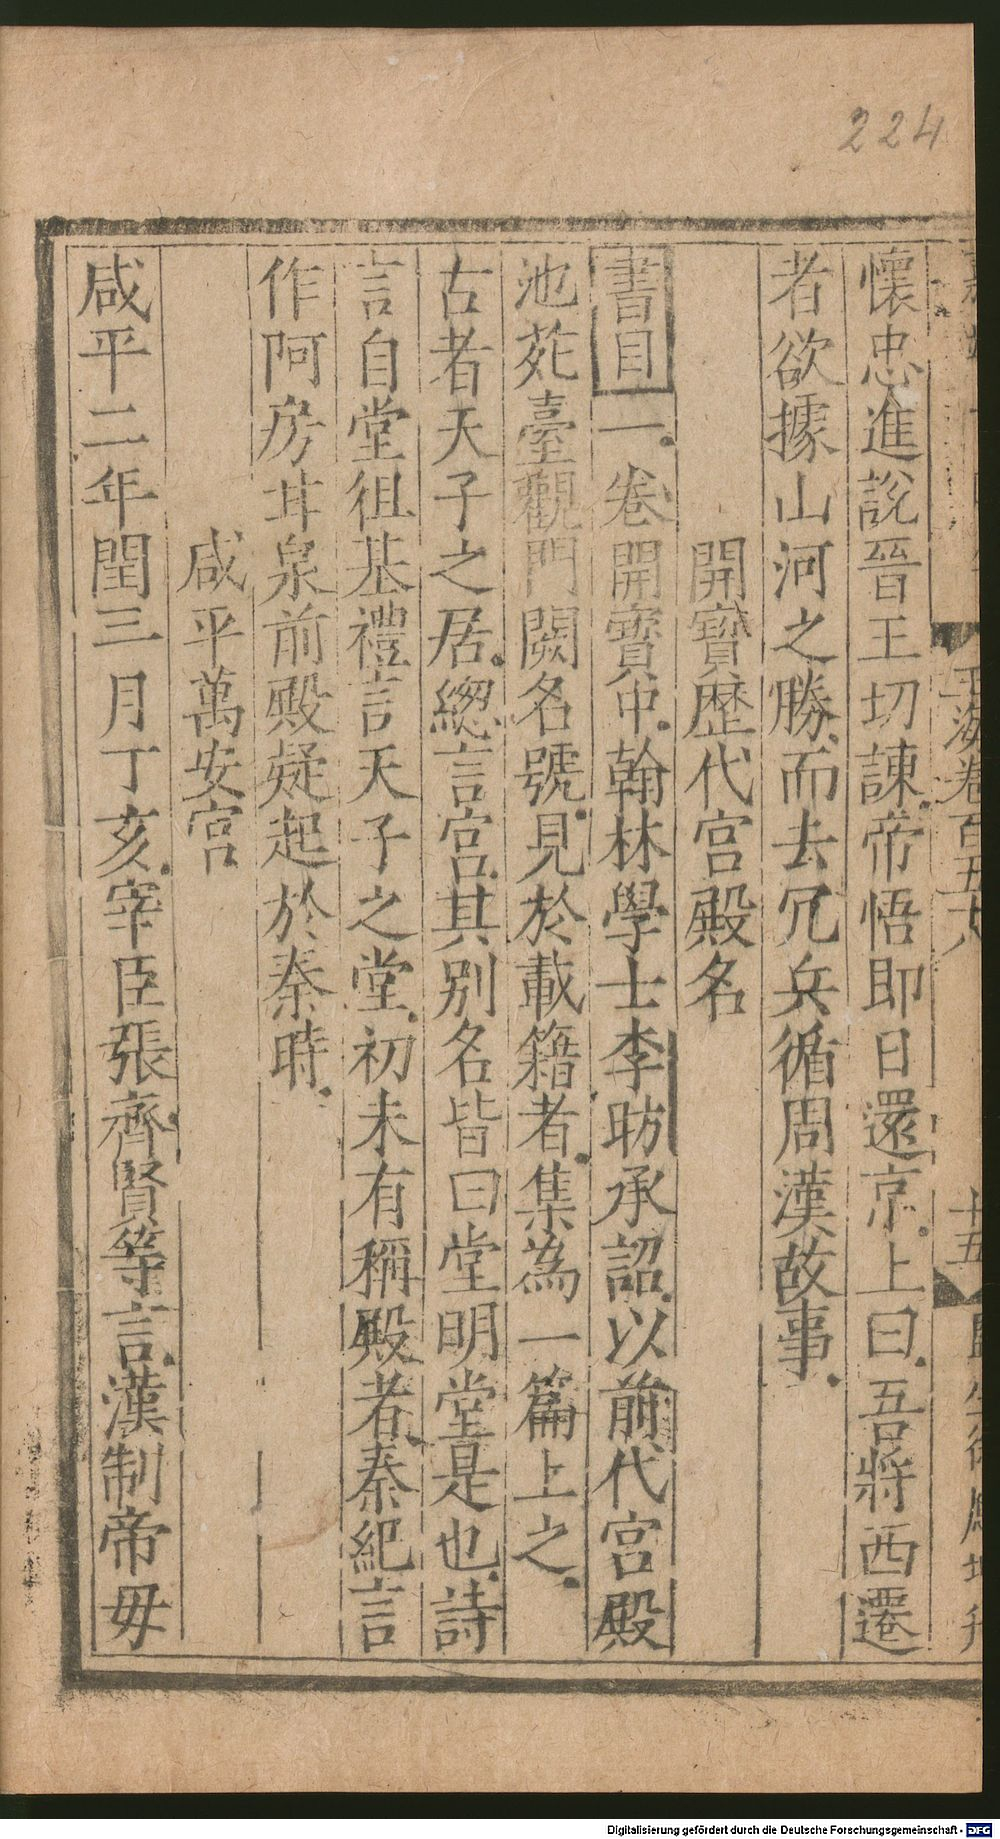 224
玉海卷百五十八
十五
懷忠進説晉王切諫帝悟即日還京上曰吾將西遷
者欲據山河之勝而去冗兵循周漢故事
開寳歷代宫殿名
書目一卷開寳中翰林學士李昉承詔以前代宫殿
池苑臺觀門闕名號見於載籍者集為一篇上之
古者天子之居總言宫其别名皆曰堂明堂是也詩
言自堂徂基禮言天子之堂初未有稱殿者秦紀言
作阿房甘泉前殿疑起於秦時
咸平萬安宫
咸平二年閏三月丁亥宰臣張齊賢等言漢制帝毋
Digitalisierung gefördert durch die Deutsche Forschungsgemeinschaft - DFG